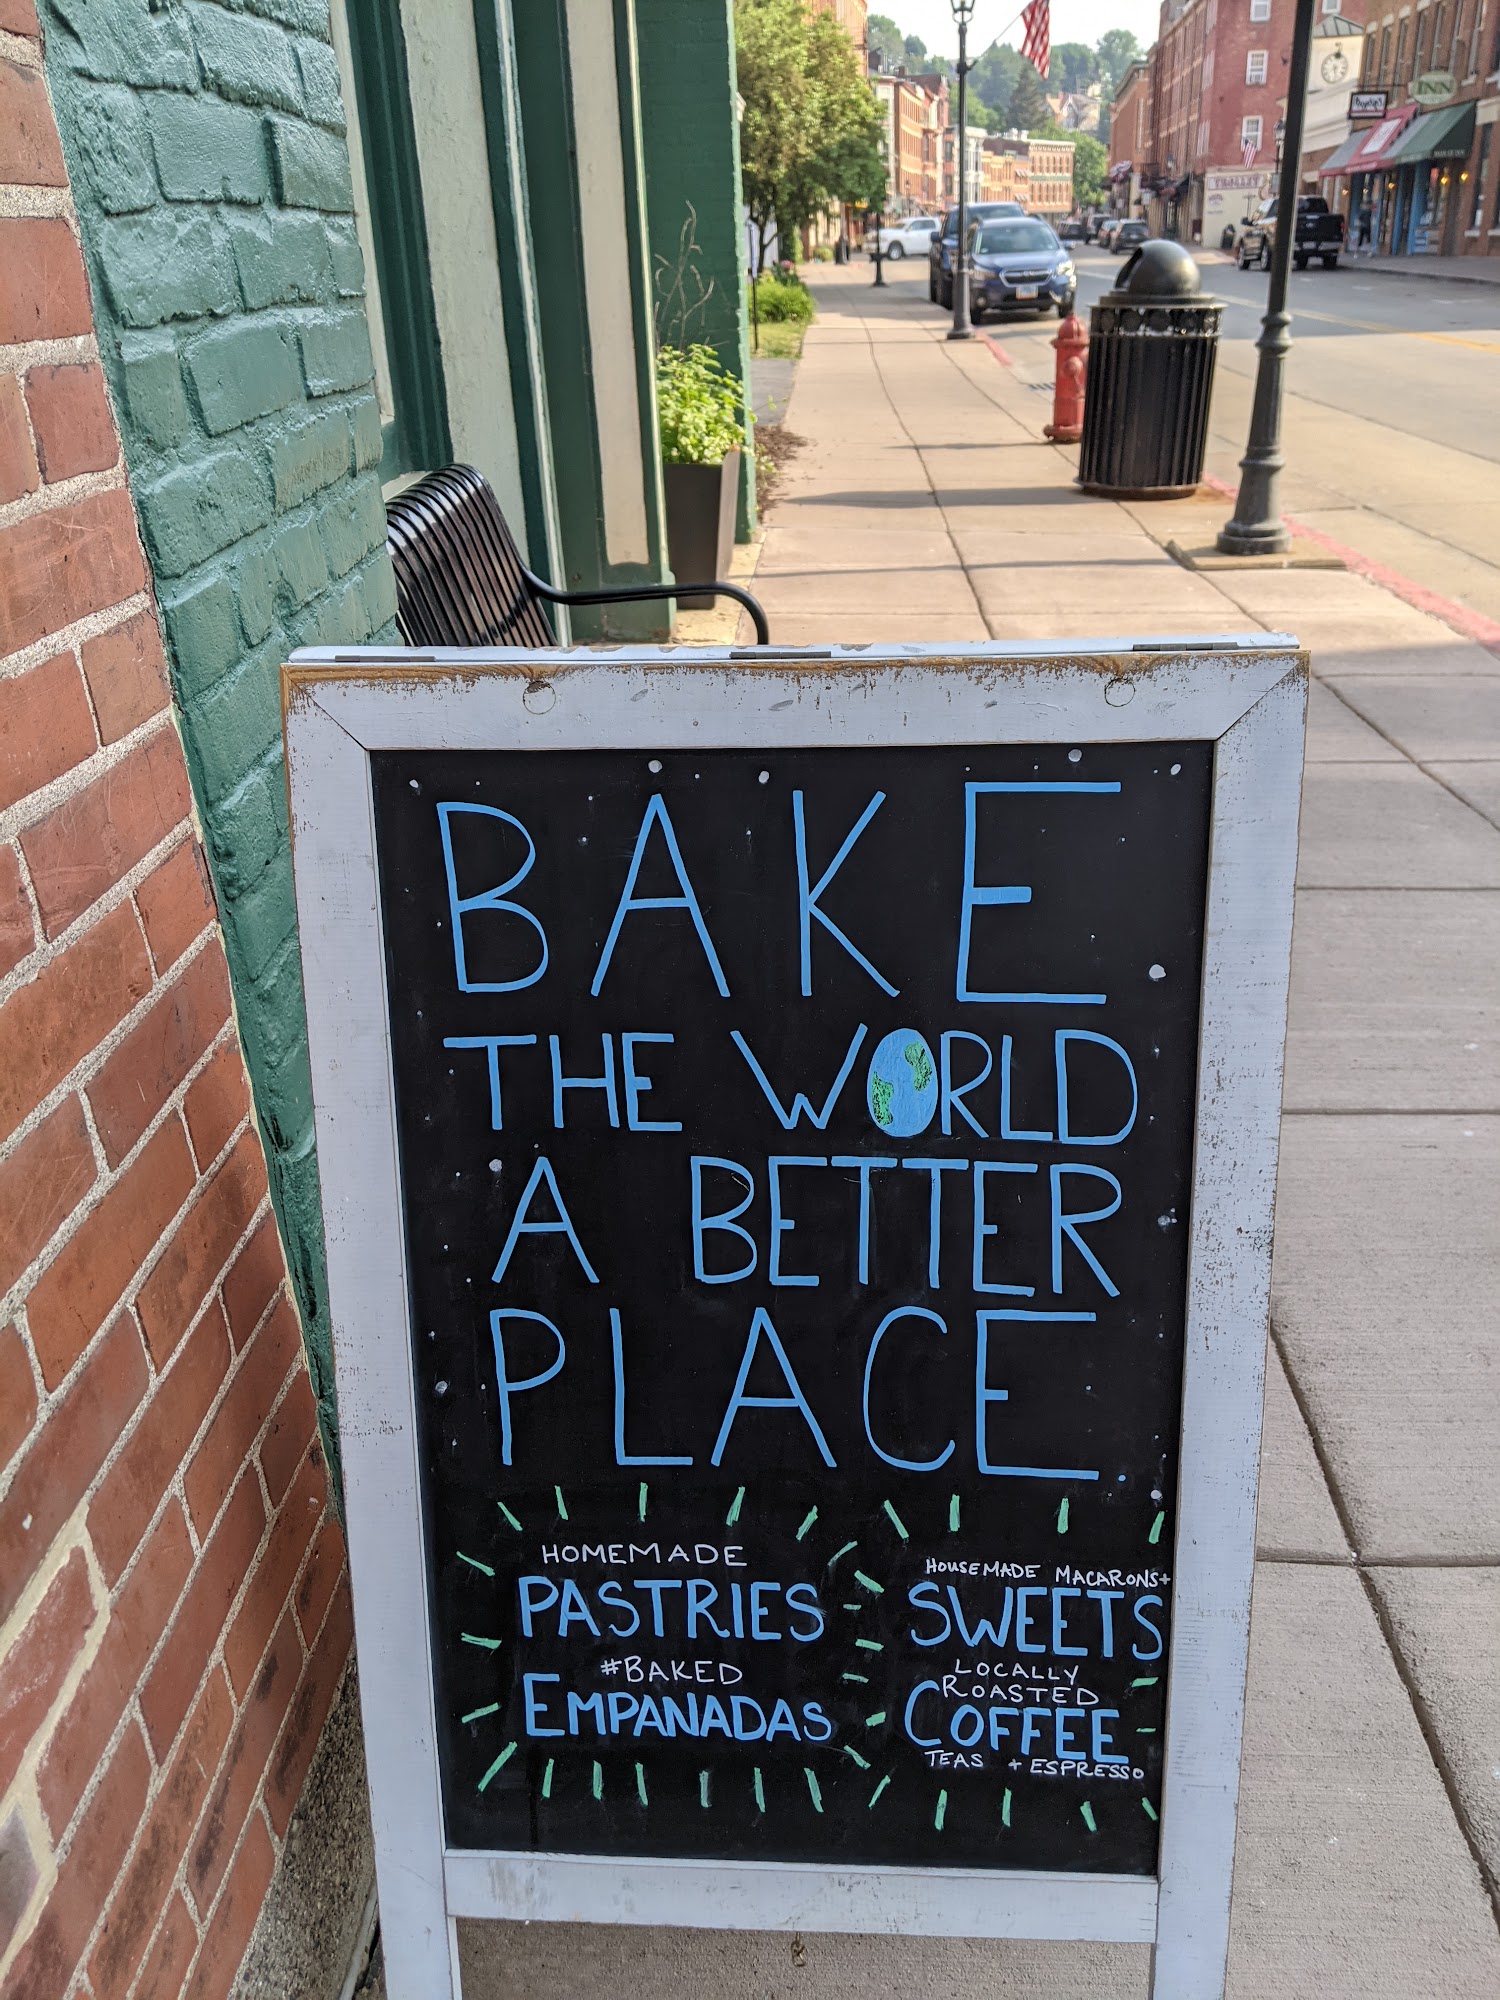 BAKE
THE WORLD
A BETTER
PLACE.
HOMEMADE
PASTRIES
#BAKED
EMPANADAS
HOUSEMADE MACARONS+
SWEETS
LOCALLY
ROASTED
COFFEE
TEAS + ESPRESSO
INN